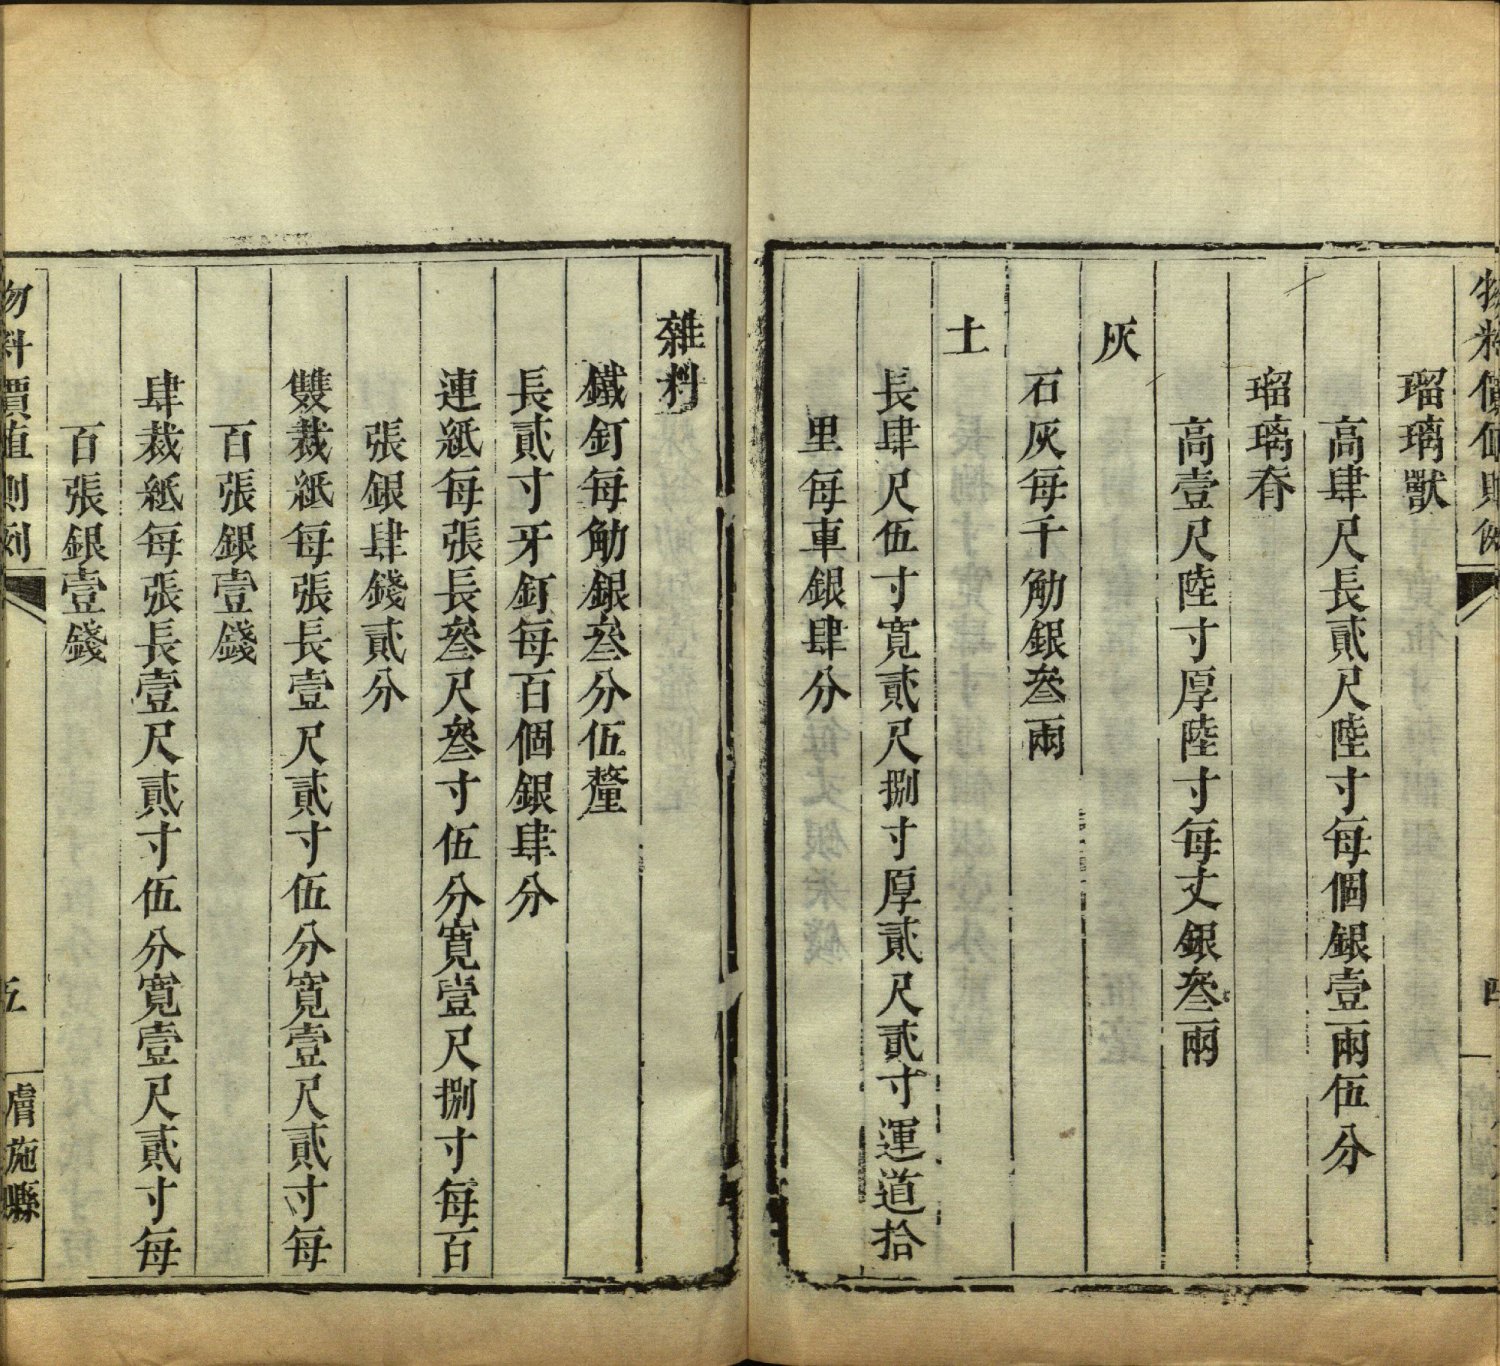 物料價值則例
四
瑠璃獸
高肆尺長貳尺陸寸每個銀壹兩伍分
瑠璃脊
高壹尺陸寸厚陸寸每丈銀叄兩
灰
石灰每千觔銀叄兩
土
長肆尺伍寸寬貳尺捌寸厚貳尺貳寸運道拾
里每車銀肆分
雜料
鐵釘每觔銀叄分伍釐
長貳寸牙釘每百個銀肆分
連紙每張長叄尺叄寸伍分寬壹尺捌寸每百
張銀肆錢貳分
雙裁紙每張長壹尺貳寸伍分寬壹尺貳寸每
百張銀壹錢
肆裁紙每張長壹尺貳寸伍分寬壹尺貳寸每
百張銀壹錢
物料價值則例
五
膚施縣